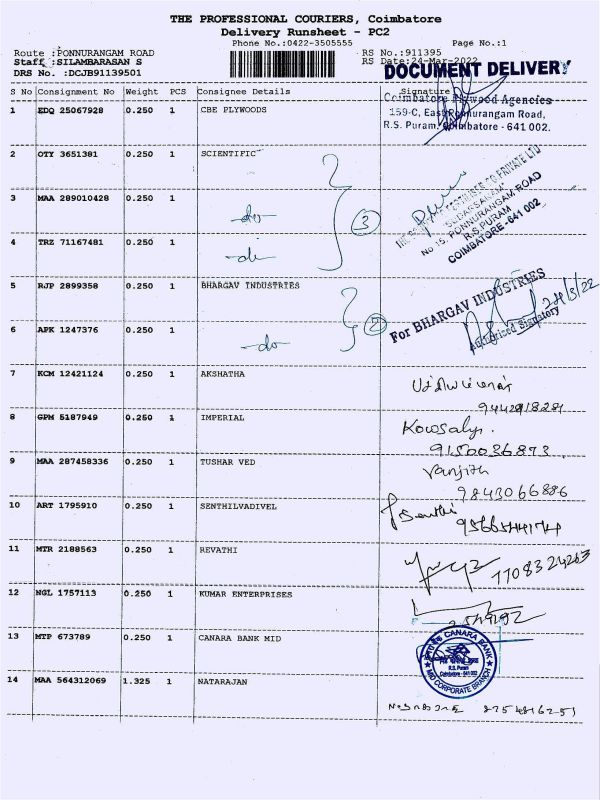 THE PROFESSIONAL COURIERS, Coimbatore
Delivery Runsheet - PC2
Phone No.:0422-3505555 Page No.:1
Route :PONNURANGAM ROAD RS No.:911395
Staff :SILAMBARASAN S RS Date:24-Mar-2022
DRS No. :DCJB91139501 DOCUMENT DELIVERY
S No Consignment No Weight PCS Consignee Details Signature
1 EDQ 25067928 0.250 1 CBE PLYWOODS Coimbatore Plywood Agencies
159-C, East Ponnurangam Road,
R.S. Puram, Coimbatore - 641 002.
2 OTY 3651381 0.250 1 SCIENTIFIC
3 MAA 289010428 0.250 1 -do- 3
"SUDARSANAM"
No 15, PONNURANGAM ROAD
R.S.PURAM
COIMBATORE - 641 002
4 TRZ 71167481 0.250 1 -do-
5 RJP 2899358 0.250 1 BHARGAV INDUSTRIES For BHARGAV INDUSTRIES
24/3/22
Authorised Signatory
6 APK 1247376 0.250 1 -do- 2
7 KCM 12421124 0.250 1 AKSHATHA
9442918281
8 GPM 5187949 0.250 1 IMPERIAL Kowsalya.
9150036873
9 MAA 287458336 0.250 1 TUSHAR VED Ranjith
9843066886
10 ART 1795910 0.250 1 SENTHILVADIVEL Senthil
11 MTR 2188563 0.250 1 REVATHI 7708324263
12 NGL 1757113 0.250 1 KUMAR ENTERPRISES
13 MTP 673789 0.250 1 CANARA BANK MID CANARA BANK
R.S. Puram
Coimbatore - 641 002
MID CORPORATE BRANCH
14 MAA 564312069 1.325 1 NATARAJAN
8754816251